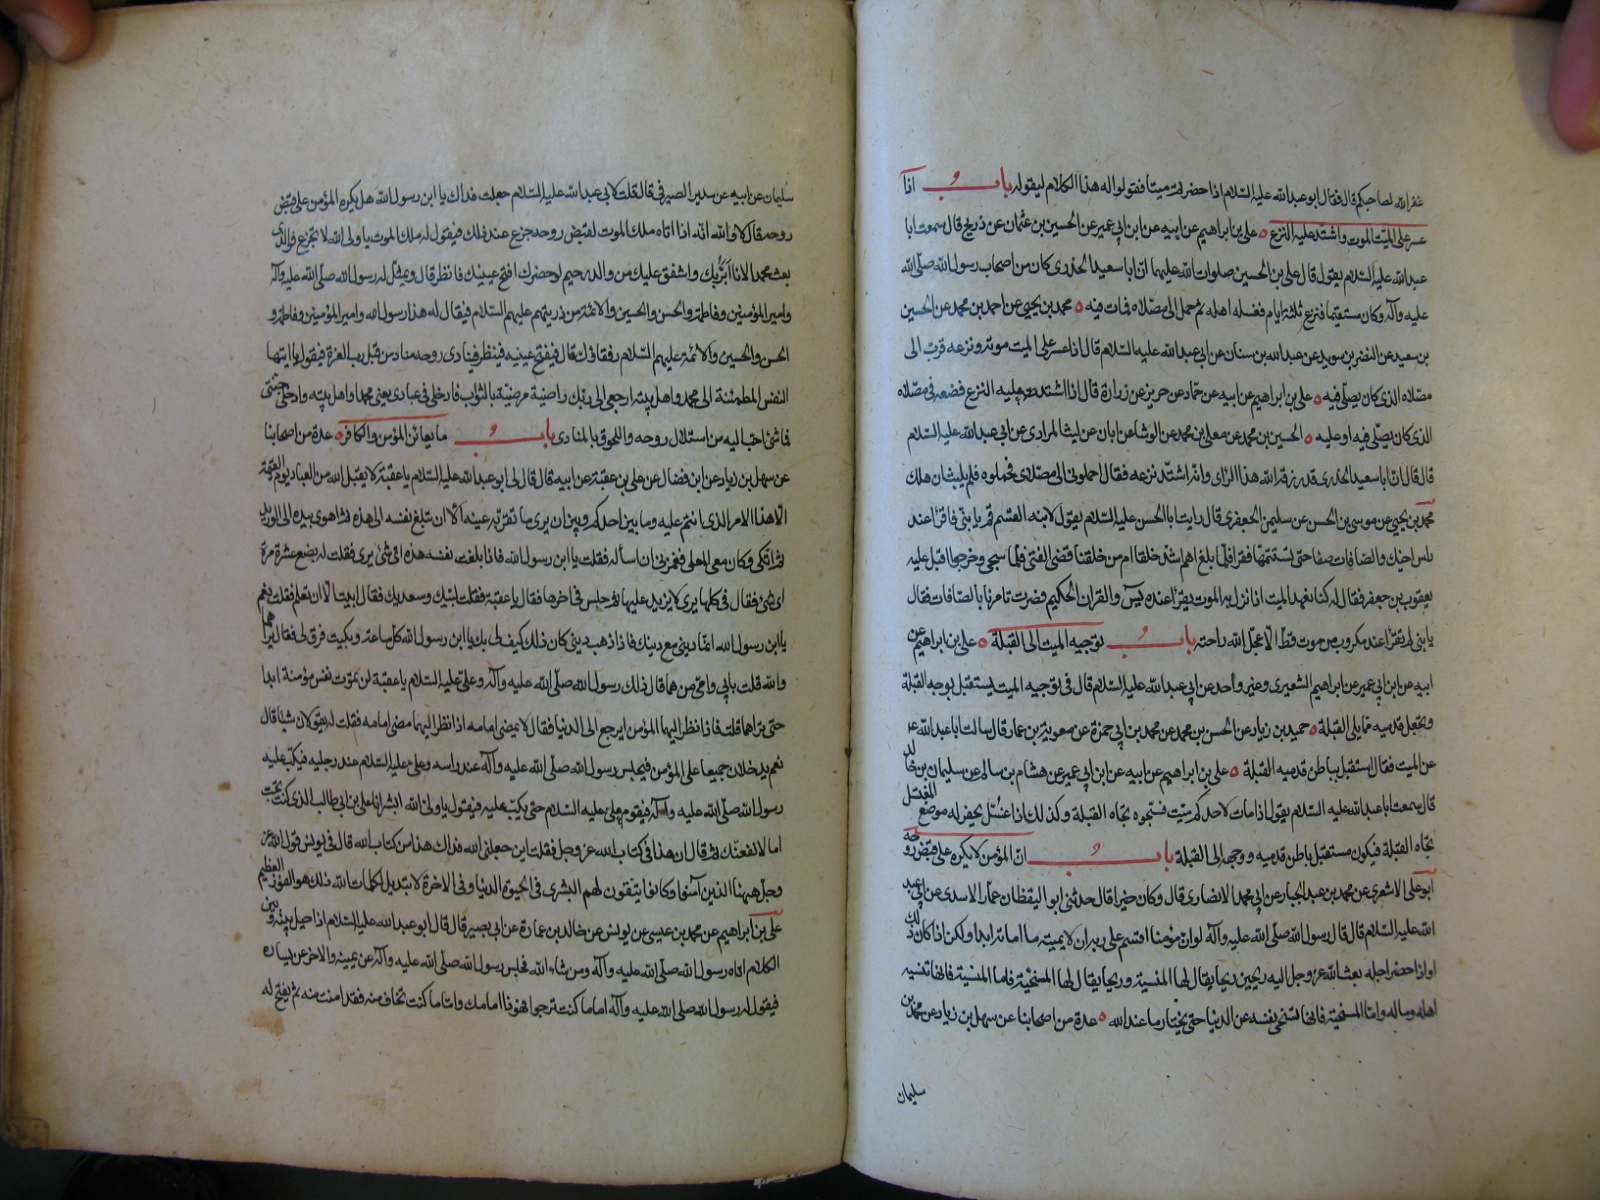 غفر الله لصاحبكم قال فقال ابو عبدالله عليه السلام اذا حضرتم ميتا فقولوا له هذا الكلام ليقوله باب اذا
عسر على الميت الموت واشتد عليه النزع ٥ علي بن ابراهيم عن ابيه عن ابن ابي عمير عن الحسين بن عثمان عن ذريح قال سمعت ابا
عبدالله عليه السلام يقول قال علي بن الحسين صلوات الله عليهما ان ابا سعيد الخدري كان من اصحاب رسول الله صلى الله
عليه وآله وكان مستقيما فنزع ثلثة ايام فغسله اهله ثم حمل الى مصلاه فمات فيه ٥ محمد بن يحيى عن احمد بن محمد عن الحسين
بن سعيد عن النضر بن سويد عن عبدالله بن سنان عن ابي عبدالله عليه السلام قال اذا عسر على الميت موته ونزعه قرب الى
مصلاه الذي كان يصلي فيه ٥ علي بن ابراهيم عن ابيه عن حماد عن حريز عن زرارة قال اذا اشتد عليه النزع فضعه في مصلاه
الذي كان يصلي فيه او عليه ٥ الحسين بن محمد عن معلى بن محمد عن الوشا عن ابان عن ليث المرادي عن ابي عبدالله عليه السلام
قال قال ان ابا سعيد الخدري قد رزقه الله هذا الراي وانه اشتد نزعه فقال احملوني الى مصلاي فحملوه فلم يلبث ان هلك
محمد بن يحيى عن موسى بن الحسن عن سليمن الجعفري قال رايت ابا الحسن عليه السلام يقول لابنه القسم قم يا بني فاقرأ عند
راس اخيك والصافات صفا حتى تستتمها فقرأ فلما بلغ اهم اشد خلقا ام من خلقنا قضى الفتى فلما سجي وخرجوا اقبل عليه
يعقوب بن جعفر فقال له كنا نعهد الميت اذا نزل به الموت يقرأ عنده يس والقران الحكيم فصرت تامرنا بالصافات فقال
يا بني لم تقرأ عند مكروب من موت قط الا عجل الله راحته باب توجيه الميت الى القبلة ٥ علي بن ابراهيم عن
ابيه عن ابن ابي عمير عن ابراهيم الشعيري وغير واحد عن ابي عبدالله عليه السلام قال في توجيه الميت يستقبل بوجهه القبلة
وتجعل قدميه مما يلي القبلة ٥ حميد بن زياد عن الحسن بن محمد عن محمد بن ابي حمزة عن معوية بن عمار قال سالت ابا عبدالله ع
عن الميت فقال استقبل بباطن قدميه القبلة ٥ علي بن ابراهيم عن ابيه عن ابن ابي عمير عن هشام بن سالم عن سليمان بن خالد
قال سمعت ابا عبدالله عليه السلام يقول اذا مات لاحدكم ميت فسجوه تجاه القبلة وكذلك اذا غسل يحفر له موضع المغتسل
تجاه القبلة فيكون مستقبل باطن قدميه ووجهه الى القبلة باب ان المؤمن لا يكره على قبض روحه
ابو علي الاشعري عن محمد بن عبد الجبار عن ابي محمد الانصاري قال وكان خيرا قال حدثني ابو اليقظان عمار الاسدي عن ابي عبد
الله عليه السلام قال قال رسول الله صلى الله عليه وآله لو ان مؤمنا اقسم على ربه ان لا يميته ما اماته ابدا ولكن اذا كان ذلك
او اذا حضر اجله بعث الله عز وجل اليه ريحين ريحا يقال لها المنسية وريحا يقال لها المسخية فاما المنسية فانها تنسيه
اهله وماله واما المسخية فانها تسخي نفسه عن الدنيا حتى يختار ما عند الله ٥ عدة من اصحابنا عن سهل بن زياد عن محمد بن
سليمان
سليمان عن ابيه عن سدير الصيرفي قال قلت لابي عبدالله عليه السلام جعلت فداك يا ابن رسول الله هل يكره المؤمن على قبض
روحه قال لا والله انه اذا اتاه ملك الموت لقبض روحه جزع عند ذلك فيقول له ملك الموت يا ولي الله لا تجزع فوالذي
بعث محمدا لانا ابر بك واشفق عليك من والد رحيم لو حضرك افتح عينيك فانظر قال ويمثل له رسول الله صلى الله عليه وآله
وامير المؤمنين وفاطمة والحسن والحسين والائمة من ذريتهم عليهم السلام فيقال له هذا رسول الله وامير المؤمنين وفاطمة و
الحسن والحسين والائمة عليهم السلام رفقاؤك قال فيفتح عينيه فينظر فينادي روحه مناد من قبل رب العزة فيقول يا ايتها
النفس المطمئنة الى محمد واهل بيته ارجعي الى ربك راضية مرضية بالثواب فادخلي في عبادي يعني محمدا واهل بيته وادخلي جنتي
فما شئ احب اليه من استلال روحه واللحوق بالمنادي باب ما يعاين المؤمن والكافر ٥ عدة من اصحابنا
عن سهل بن زياد عن ابن فضال عن علي بن عقبة عن ابيه قال قال لي ابو عبدالله عليه السلام يا عقبة لا يقبل الله من العباد يوم القيمة
الا هذا الامر الذي انتم عليه وما بين احدكم وبين ان يرى ما تقر به عينه الا ان تبلغ نفسه الى هذه ثم اهوى بيده الى الوريد
ثم اتكى وكان معي المعلى فغمزني ان اساله فقلت يا ابن رسول الله فاذا بلغت نفسه هذه اي شئ يرى فقلت له بضع عشرة مرة
اي شئ فقال في كلها يرى لا يزيد عليها ثم جلس في اخرها فقال يا عقبة فقلت لبيك وسعديك فقال ابيت الا ان تعلم فقلت نعم
يا ابن رسول الله انما ديني مع دينك فاذا ذهب ديني كان ذلك كيف لي بك يا ابن رسول الله كل ساعة وبكيت فرق لي فقال يراهما
والله قلت بابي وامي من هما قال ذلك رسول الله صلى الله عليه وآله وعلي عليه السلام يا عقبة لن تموت نفس مؤمنة ابدا
حتى تراهما قلت فاذا نظر اليهما المؤمن ايرجع الى الدنيا فقال لا يمضي امامه اذا نظر اليهما مضى امامه فقلت له يقولان شيئا قال
نعم يدخلان جميعا على المؤمن فيجلس رسول الله صلى الله عليه وآله عند راسه وعلي عليه السلام عند رجليه فيكب عليه
رسول الله صلى الله عليه وآله فيقوم علي عليه السلام حتى يكب عليه فيقول يا ولي الله ابشر انا علي بن ابي طالب الذي كنت تحبه
اما لانفعنك ثم قال ان هذا في كتاب الله عز وجل فقلت اين جعلني الله فداك هذا من كتاب الله قال في يونس قول الله عز
وجل ههنا الذين آمنوا وكانوا يتقون لهم البشرى في الحيوة الدنيا وفي الاخرة لا تبديل لكلمات الله ذلك هو الفوز العظيم
علي بن ابراهيم عن محمد بن عيسى عن يونس عن خالد بن عمارة عن ابي بصير قال قال ابو عبدالله عليه السلام اذا حيل بينه وبين
الكلام اتاه رسول الله صلى الله عليه وآله ومن شاء الله فجلس رسول الله صلى الله عليه وآله عن يمينه والاخر عن يساره
فيقول له رسول الله صلى الله عليه وآله اما ما كنت ترجوا فهو ذا امامك واما ما كنت تخاف منه فقد امنت منه ثم يفتح له